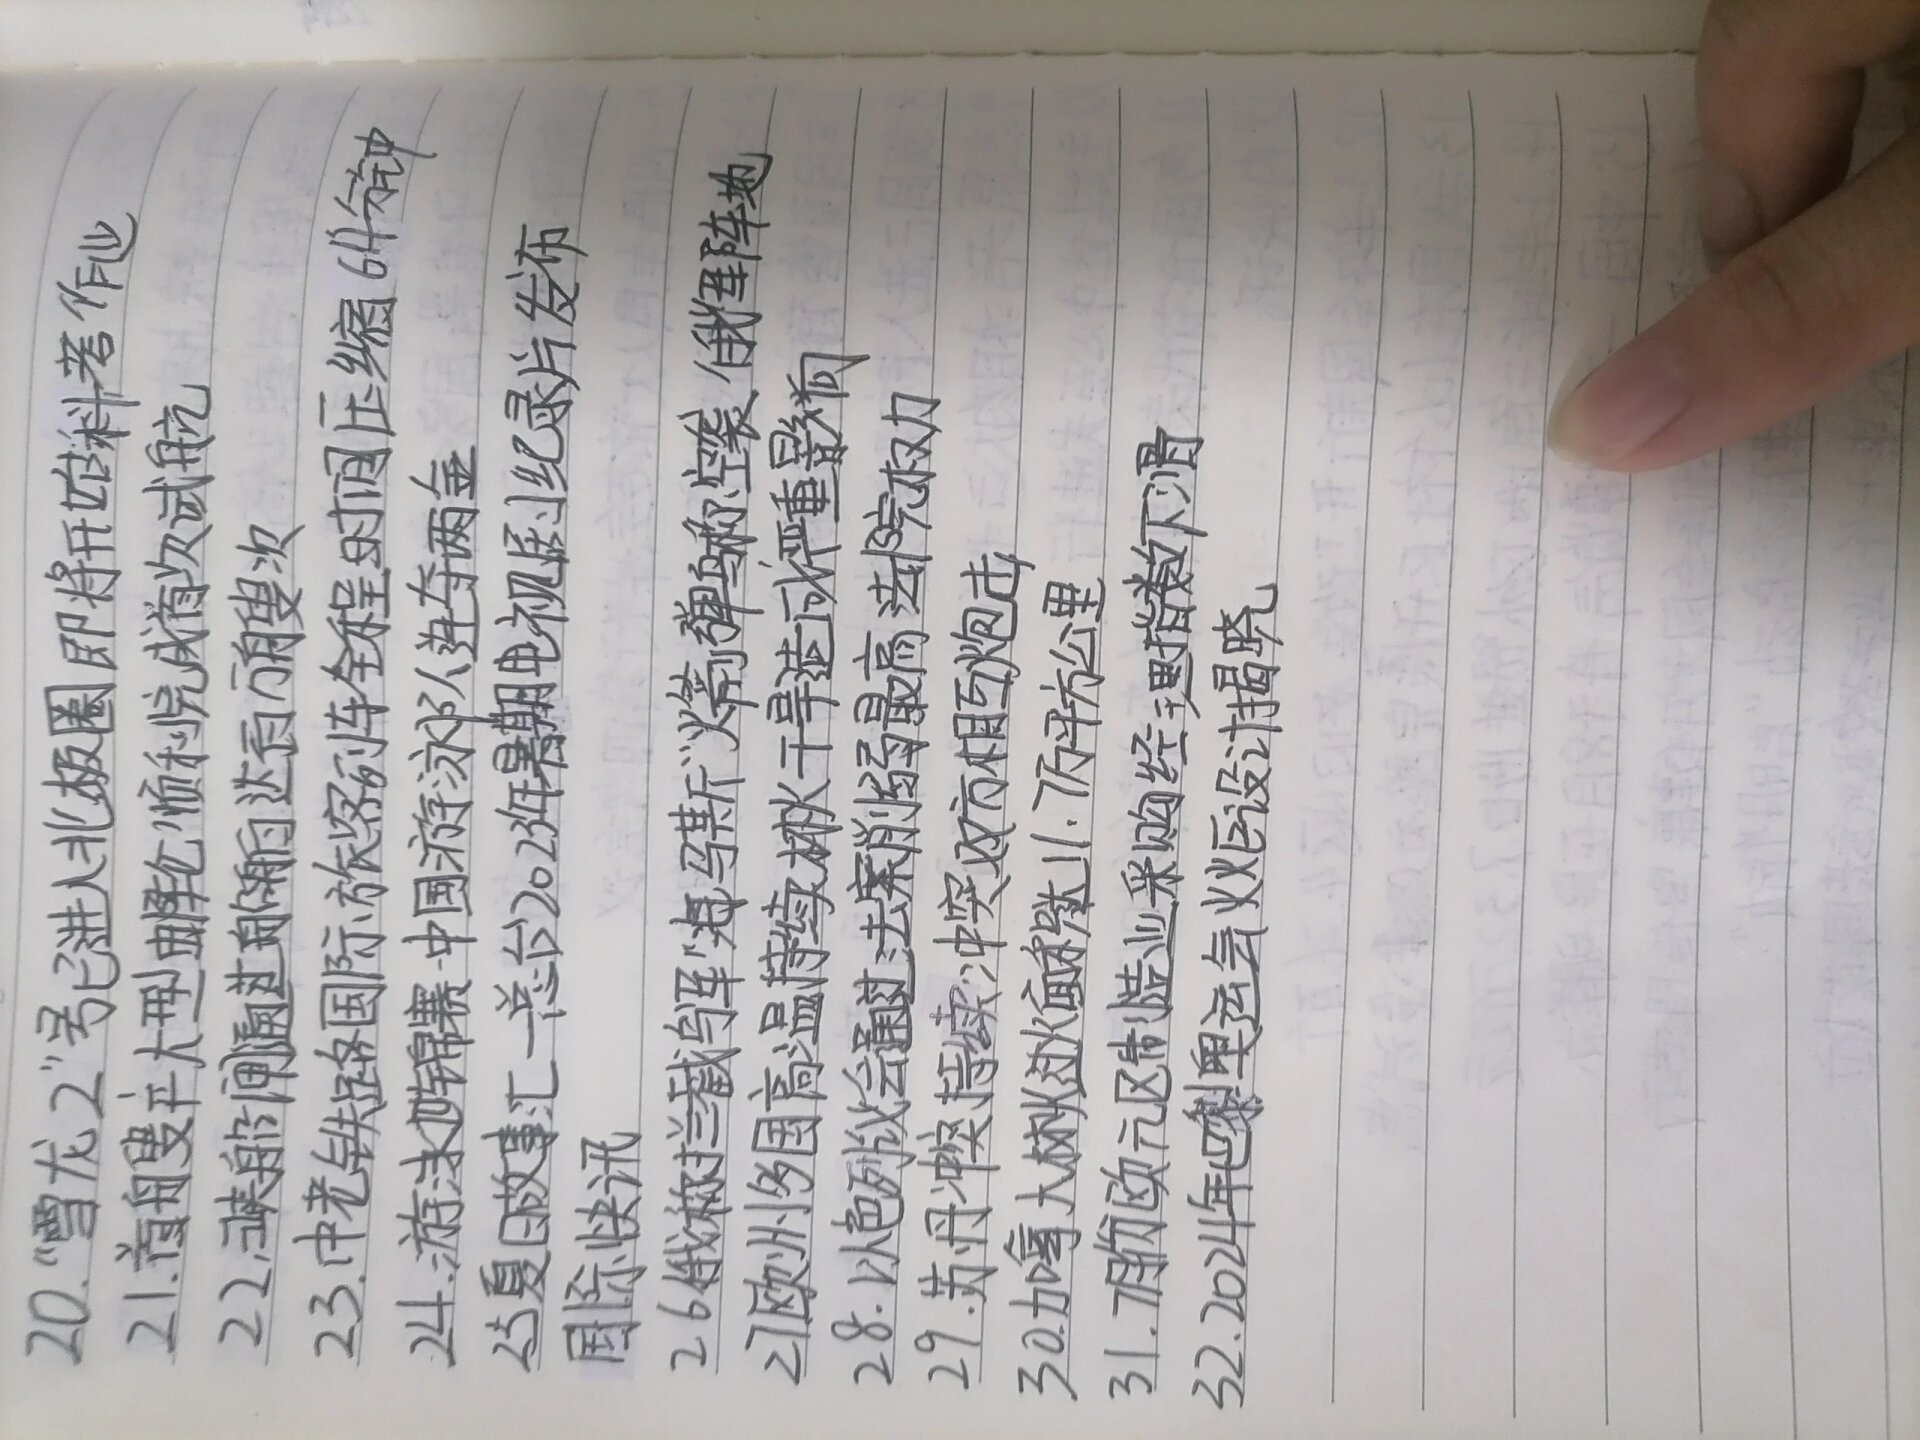 20."雪龙2"号已进入北极圈即将开始科考作业
21.首艘产大型邮轮顺利完成首次试航
22.三峡船闸通过船舶达百万艘次
23.中老铁路国际旅客列车全程时间压缩64分钟
24.游泳世锦赛:中国游泳队连夺两金
25夏日故事汇—总台2023年暑期电视展映纪录片发布
国际快讯
26俄称拦截乌军"海马斯"火箭弹乌称空袭俄军阵地
27欧洲多国高温持续林火干旱造成严重影响
28.以色列议会通过法案削弱最高法院权力
29.苏丹冲突持续冲突双方相互炮击
30加拿大林火过火面积达11.7万平方公里
31.7月份欧元区制造业采购经理指数下滑
32.2024年巴黎奥运会火炬设计揭晓